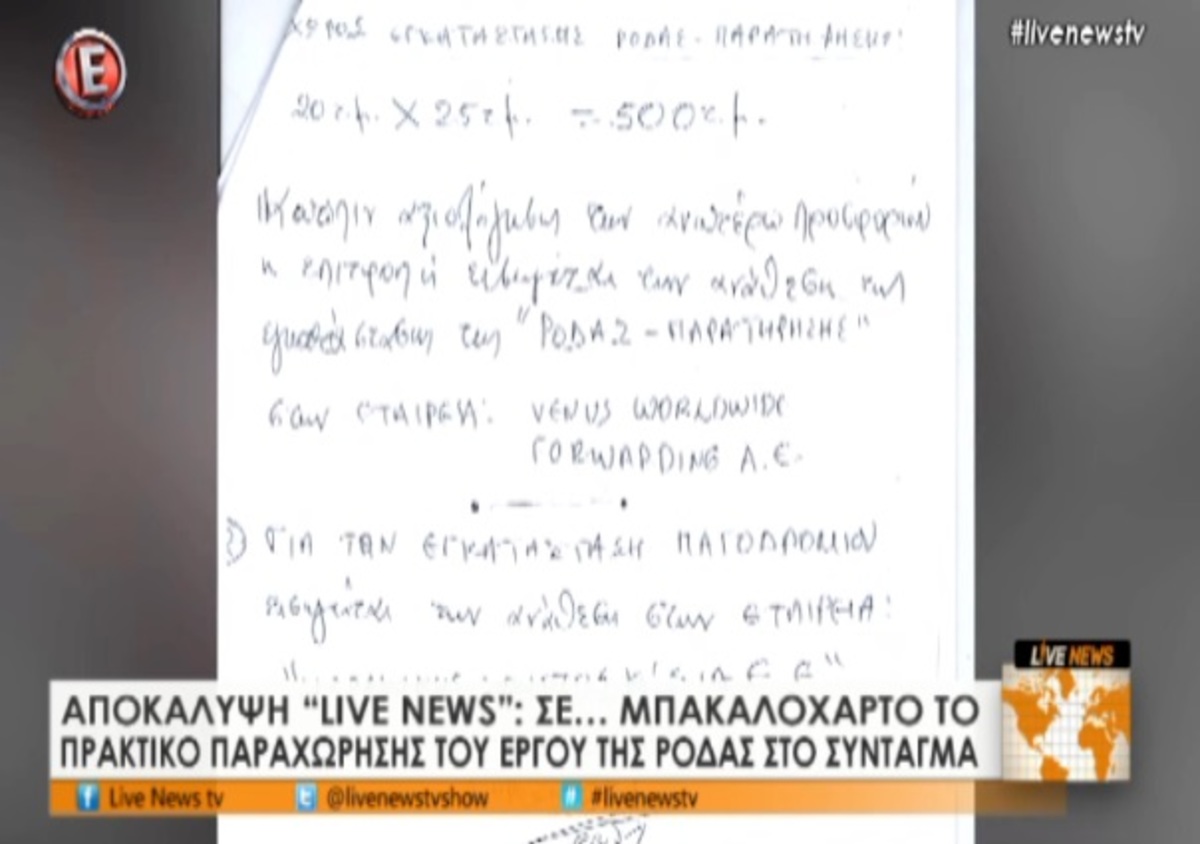 E
#livenewstv
ΧΩΡΟΣ ΕΓΚΑΤΑΣΤΑΣΗΣ ΡΟΔΑΣ-ΠΑΡΑΤΗΡΗΣΗΣ:
20τ.μ. Χ 25τ.μ. = 500τ.μ.
Κατόπιν αξιολόγησης των ανωτέρω προσφορών
η επιτροπή εισηγείται την ανάθεση της
εγκατάστασης της "ΡΟΔΑΣ-ΠΑΡΑΤΗΡΗΣΗΣ"
στην ΕΤΑΙΡΕΙΑ: VENUS WORLDWIDE
FORWARDING Α.Ε.
ΓΙΑ ΤΗΝ ΕΓΚΑΤΑΣΤΑΣΗ ΠΑΓΟΔΡΟΜΙΟΥ
εισηγείται την ανάθεση στην ΕΤΑΙΡΕΙΑ:
LIVE NEWS
ΑΠΟΚΑΛΥΨΗ "LIVE NEWS": ΣΕ... ΜΠΑΚΑΛΟΧΑΡΤΟ ΤΟ
ΠΡΑΚΤΙΚΟ ΠΑΡΑΧΩΡΗΣΗΣ ΤΟΥ ΕΡΓΟΥ ΤΗΣ ΡΟΔΑΣ ΣΤΟ ΣΥΝΤΑΓΜΑ
f Live News tv @livenewstvshow # #livenewstv